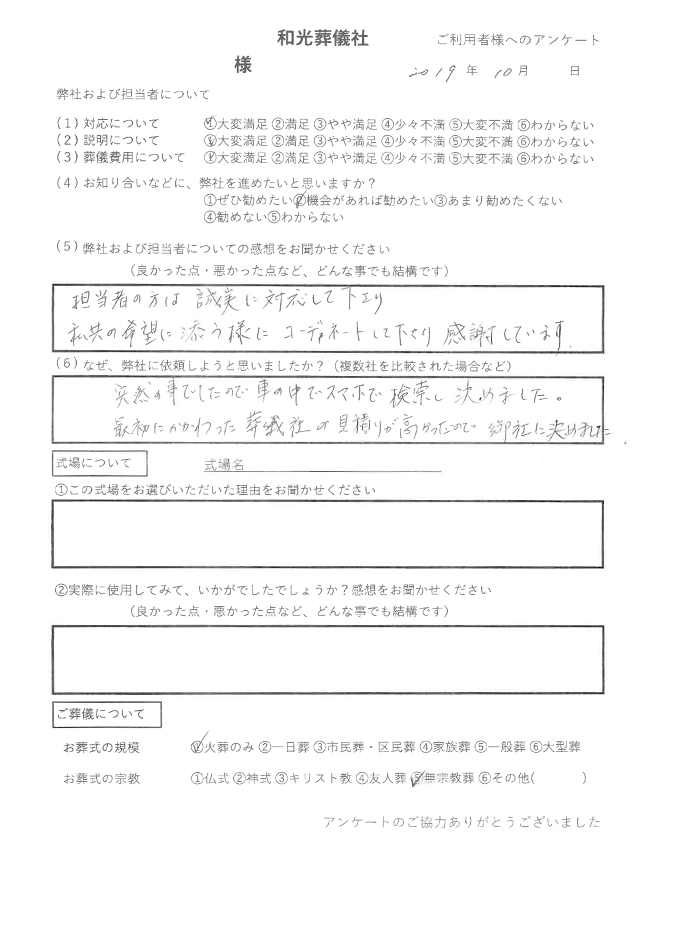 和光葬儀社 ご利用者様へのアンケート
様 2019 年 10 月 日
弊社および担当者について
(1) 対応について ①大変満足 ②満足 ③やや満足 ④少々不満 ⑤大変不満 ⑥わからない
(2) 説明について ①大変満足 ②満足 ③やや満足 ④少々不満 ⑤大変不満 ⑥わからない
(3) 葬儀費用について ①大変満足 ②満足 ③やや満足 ④少々不満 ⑤大変不満 ⑥わからない
(4) お知り合いなどに、弊社を進めたいと思いますか?
①ぜひ勧めたい②機会があれば勧めたい③あまり勧めたくない
④勧めない⑤わからない
(5) 弊社および担当者についての感想をお聞かせください
(良かった点・悪かった点など、どんな事でも結構です)
担当者の方は 誠実に対応して下さり
私共の希望に添う様に コーディネートして下さり 感謝しています。
(6) なぜ、弊社に依頼しようと思いましたか?(複数社を比較された場合など)
突然の事でしたので 車の中でスマホで 検索し 決めました。
最初にかかわった 葬儀社の見積りが高かったので 御社に決めました。
式場について 式場名
①この式場をお選びいただいた理由をお聞かせください
②実際に使用してみて、いかがでしたでしょうか?感想をお聞かせください
(良かった点・悪かった点など、どんな事でも結構です)
ご葬儀について
お葬式の規模 ①火葬のみ ②一日葬 ③市民葬・区民葬 ④家族葬 ⑤一般葬 ⑥大型葬
お葬式の宗教 ①仏式 ②神式 ③キリスト教 ④友人葬 ⑤無宗教葬 ⑥その他( )
アンケートのご協力ありがとうございました